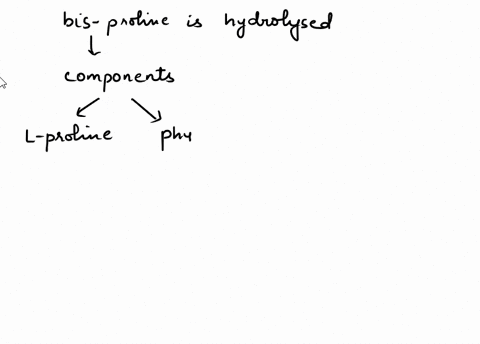 bis-proline is hydrolysed
components
L-proline phy